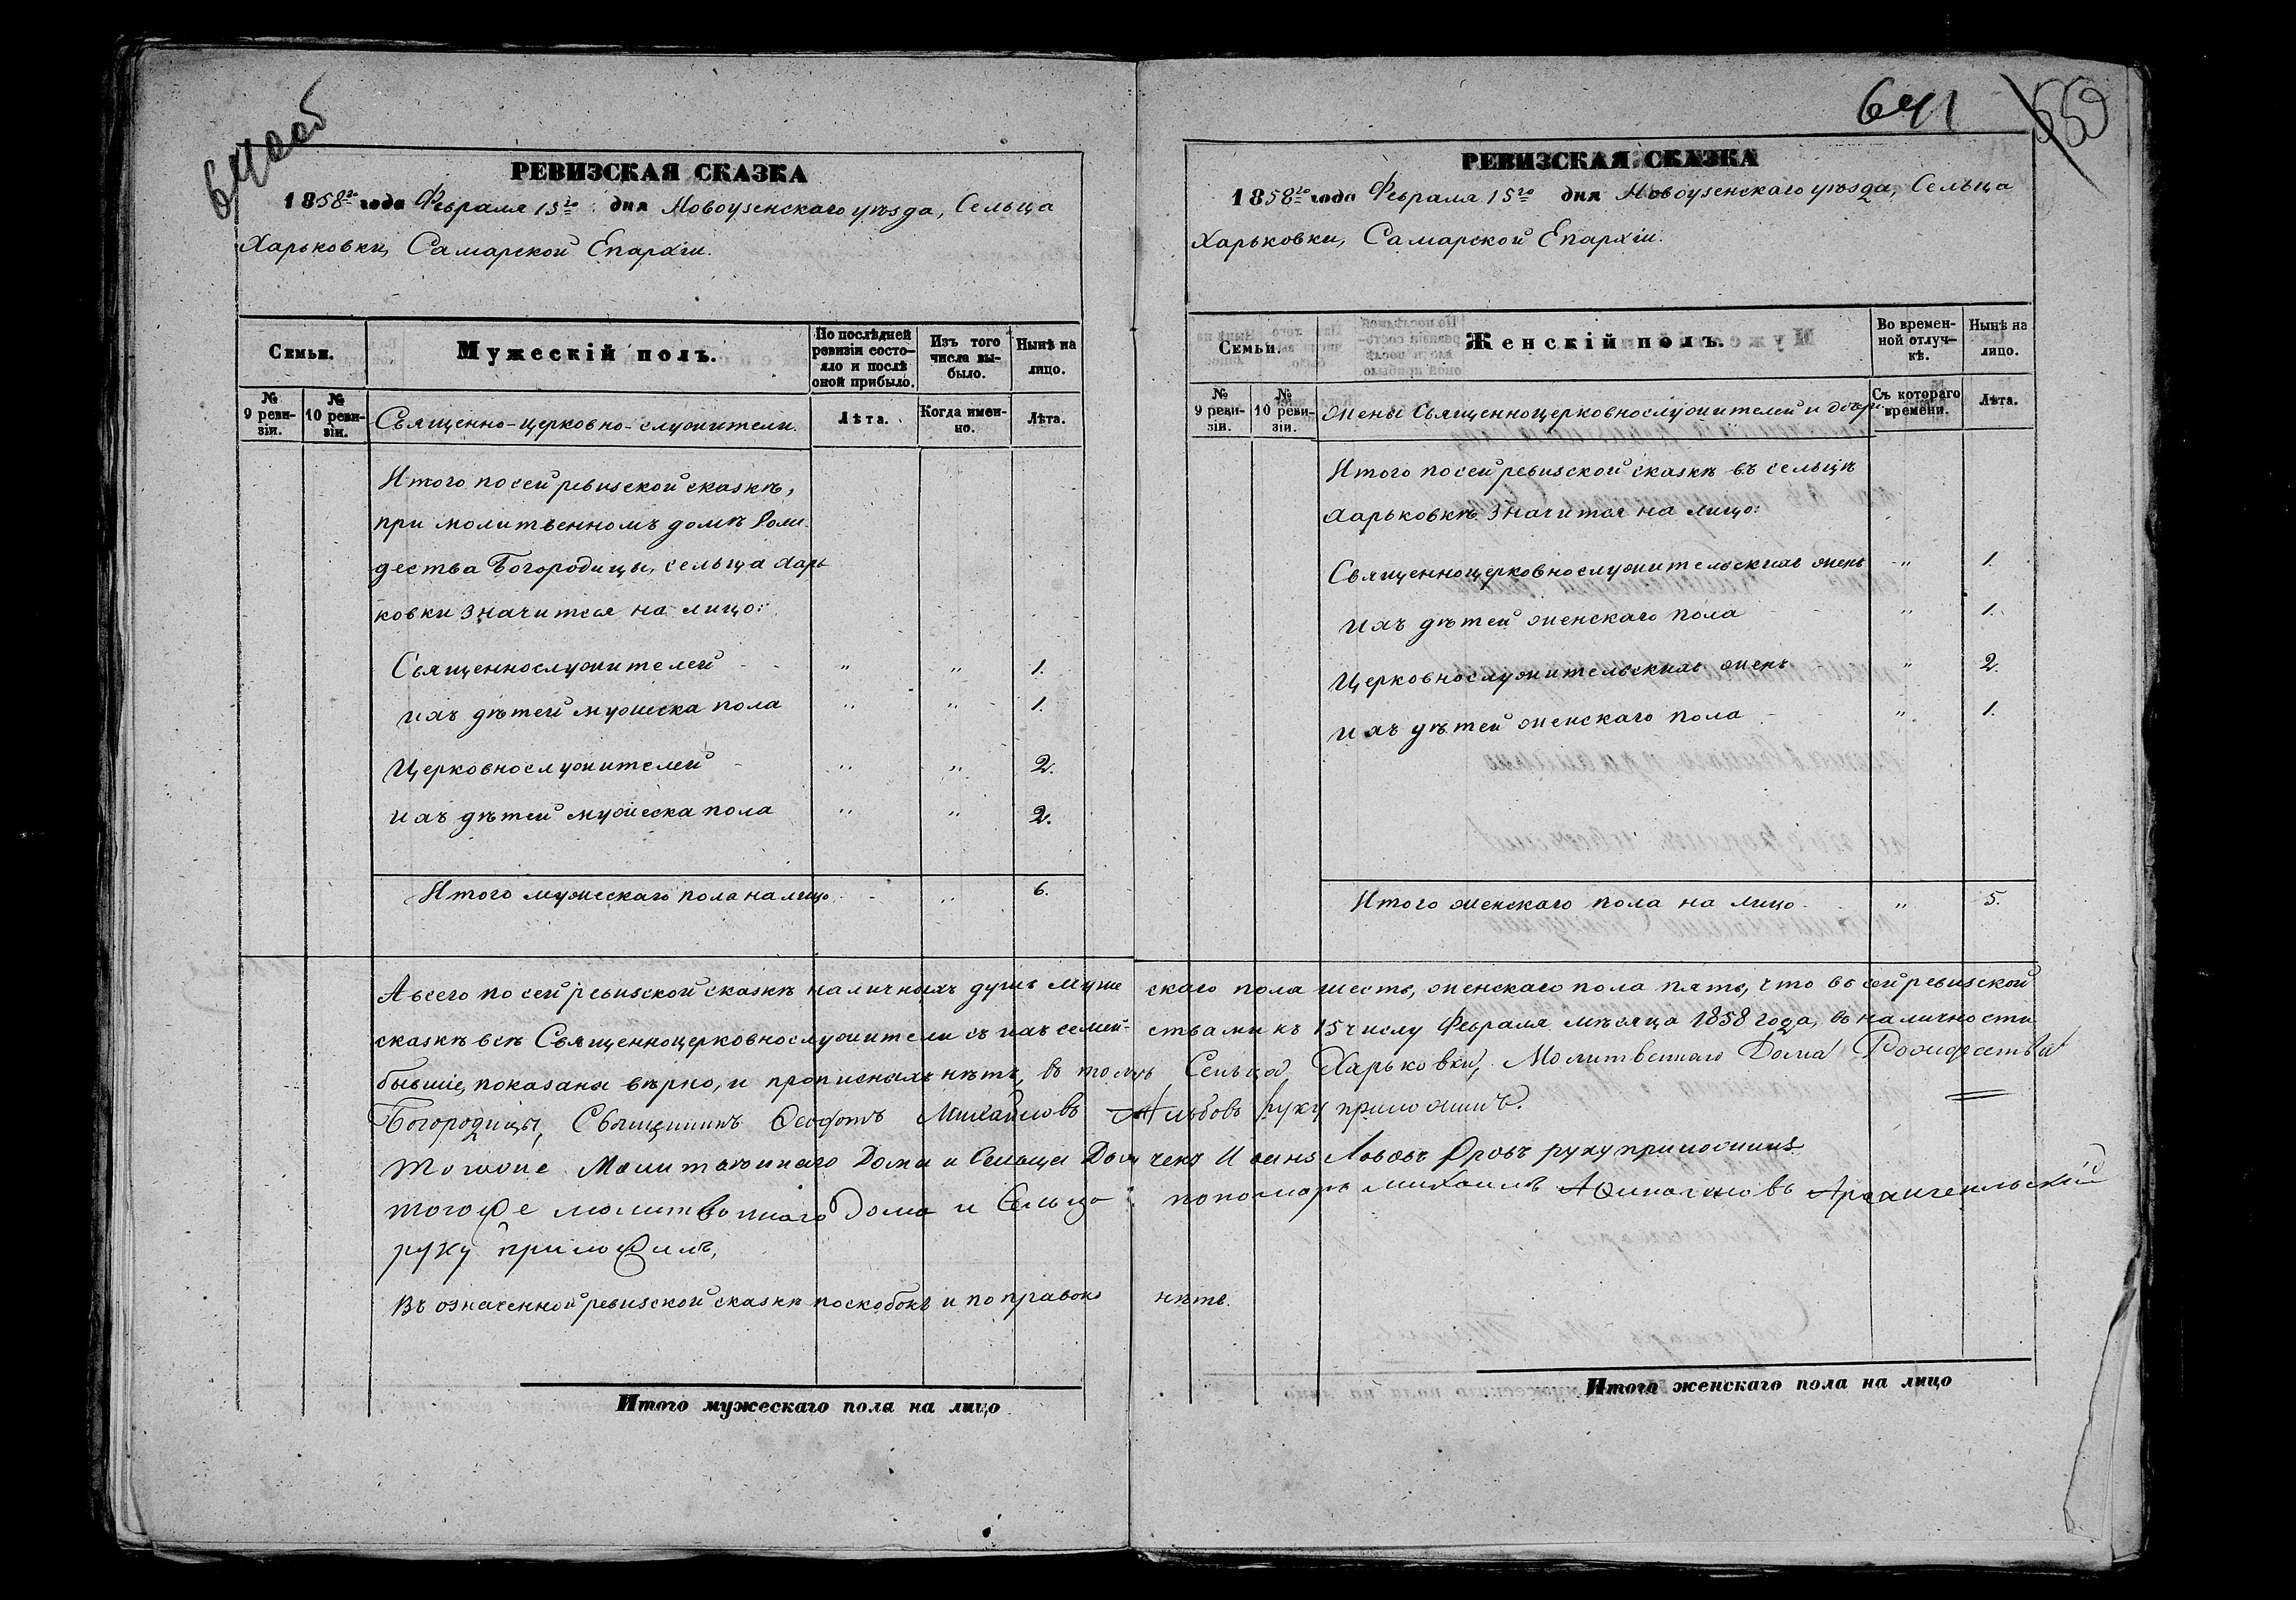 640об
РЕВИЗСКАЯ СКАЗКА
1858го года Февраля 15го дня Новоузенскаго уѣзда, Сельца
Харьковки, Самарской Епархіи.
Семьи.
Мужескій полъ.
По послѣдней ревизіи состояло и послѣ оной прибыло.
Изъ того числа выбыло.
Нынѣ на лицо.
№ 9 ревизіи.
№ 10 ревизіи.
Священно-церковно-служители.
Лѣта.
Когда именно.
Лѣта.
Итого по сей ревизской сказкѣ,
при молитвенномъ домѣ Рож-
дества Богородицы, сельца Харь-
ковки значится на лицо:
Священнослужителей " " 1.
ихъ дѣтей мужеска пола " " 1.
Церковнослужителей " " 2.
ихъ дѣтей мужеска пола " " 2.
Итого мужескаго пола на лицо " 6.
641 559
РЕВИЗСКАЯ СКАЗКА
1858го года Февраля 15го дня Новоузенскаго уѣзда, Сельца
Харьковки, Самарской Епархіи.
Семьи.
Женскій полъ.
Во временной отлучкѣ.
Нынѣ на лицо.
№ 9 ревизіи.
№ 10 ревизіи.
Жены Священноцерковнослужителей и дочери
Съ котораго времени.
Лѣта.
Итого по сей ревизской сказкѣ въ сельцѣ
Харьковкѣ значится на лицо:
Священноцерковнослужительскихъ женъ " 1.
ихъ дѣтей женскаго пола " 1.
Церковнослужительскихъ женъ " 2.
ихъ дѣтей женскаго пола " 1.
Итого женскаго пола на лицо " 5.
А всего по сей ревизской сказкѣ наличныхъ душъ муже скаго пола шесть, женскаго пола пять, что въ сей ревизской
сказкѣ всѣ Священноцерковнослужители съ ихъ семей-ствами къ 15 числу Февраля мѣсяца 1858 года, въ наличности
бывшіе, показаны вѣрно, и прописныхъ нѣтъ, въ томъ Сельца Харьковки, Молитвеннаго Дома Рождества
Богородицы, Священникъ Ѳеофотъ Михайловъ Альбовъ руку приложилъ.
Тогоже Молитвеннаго Дома и Сельца Дьячекъ Иоаннъ Львовъ руку приложилъ
тогоже молитвеннаго дома и Сельца пономарь Михаилъ Архангельскій
руку приложилъ,
Въ означенной ревизской сказкѣ поскобокъ и поправокъ нѣтъ.
Итого мужескаго пола на лицо
Итого женскаго пола на лицо